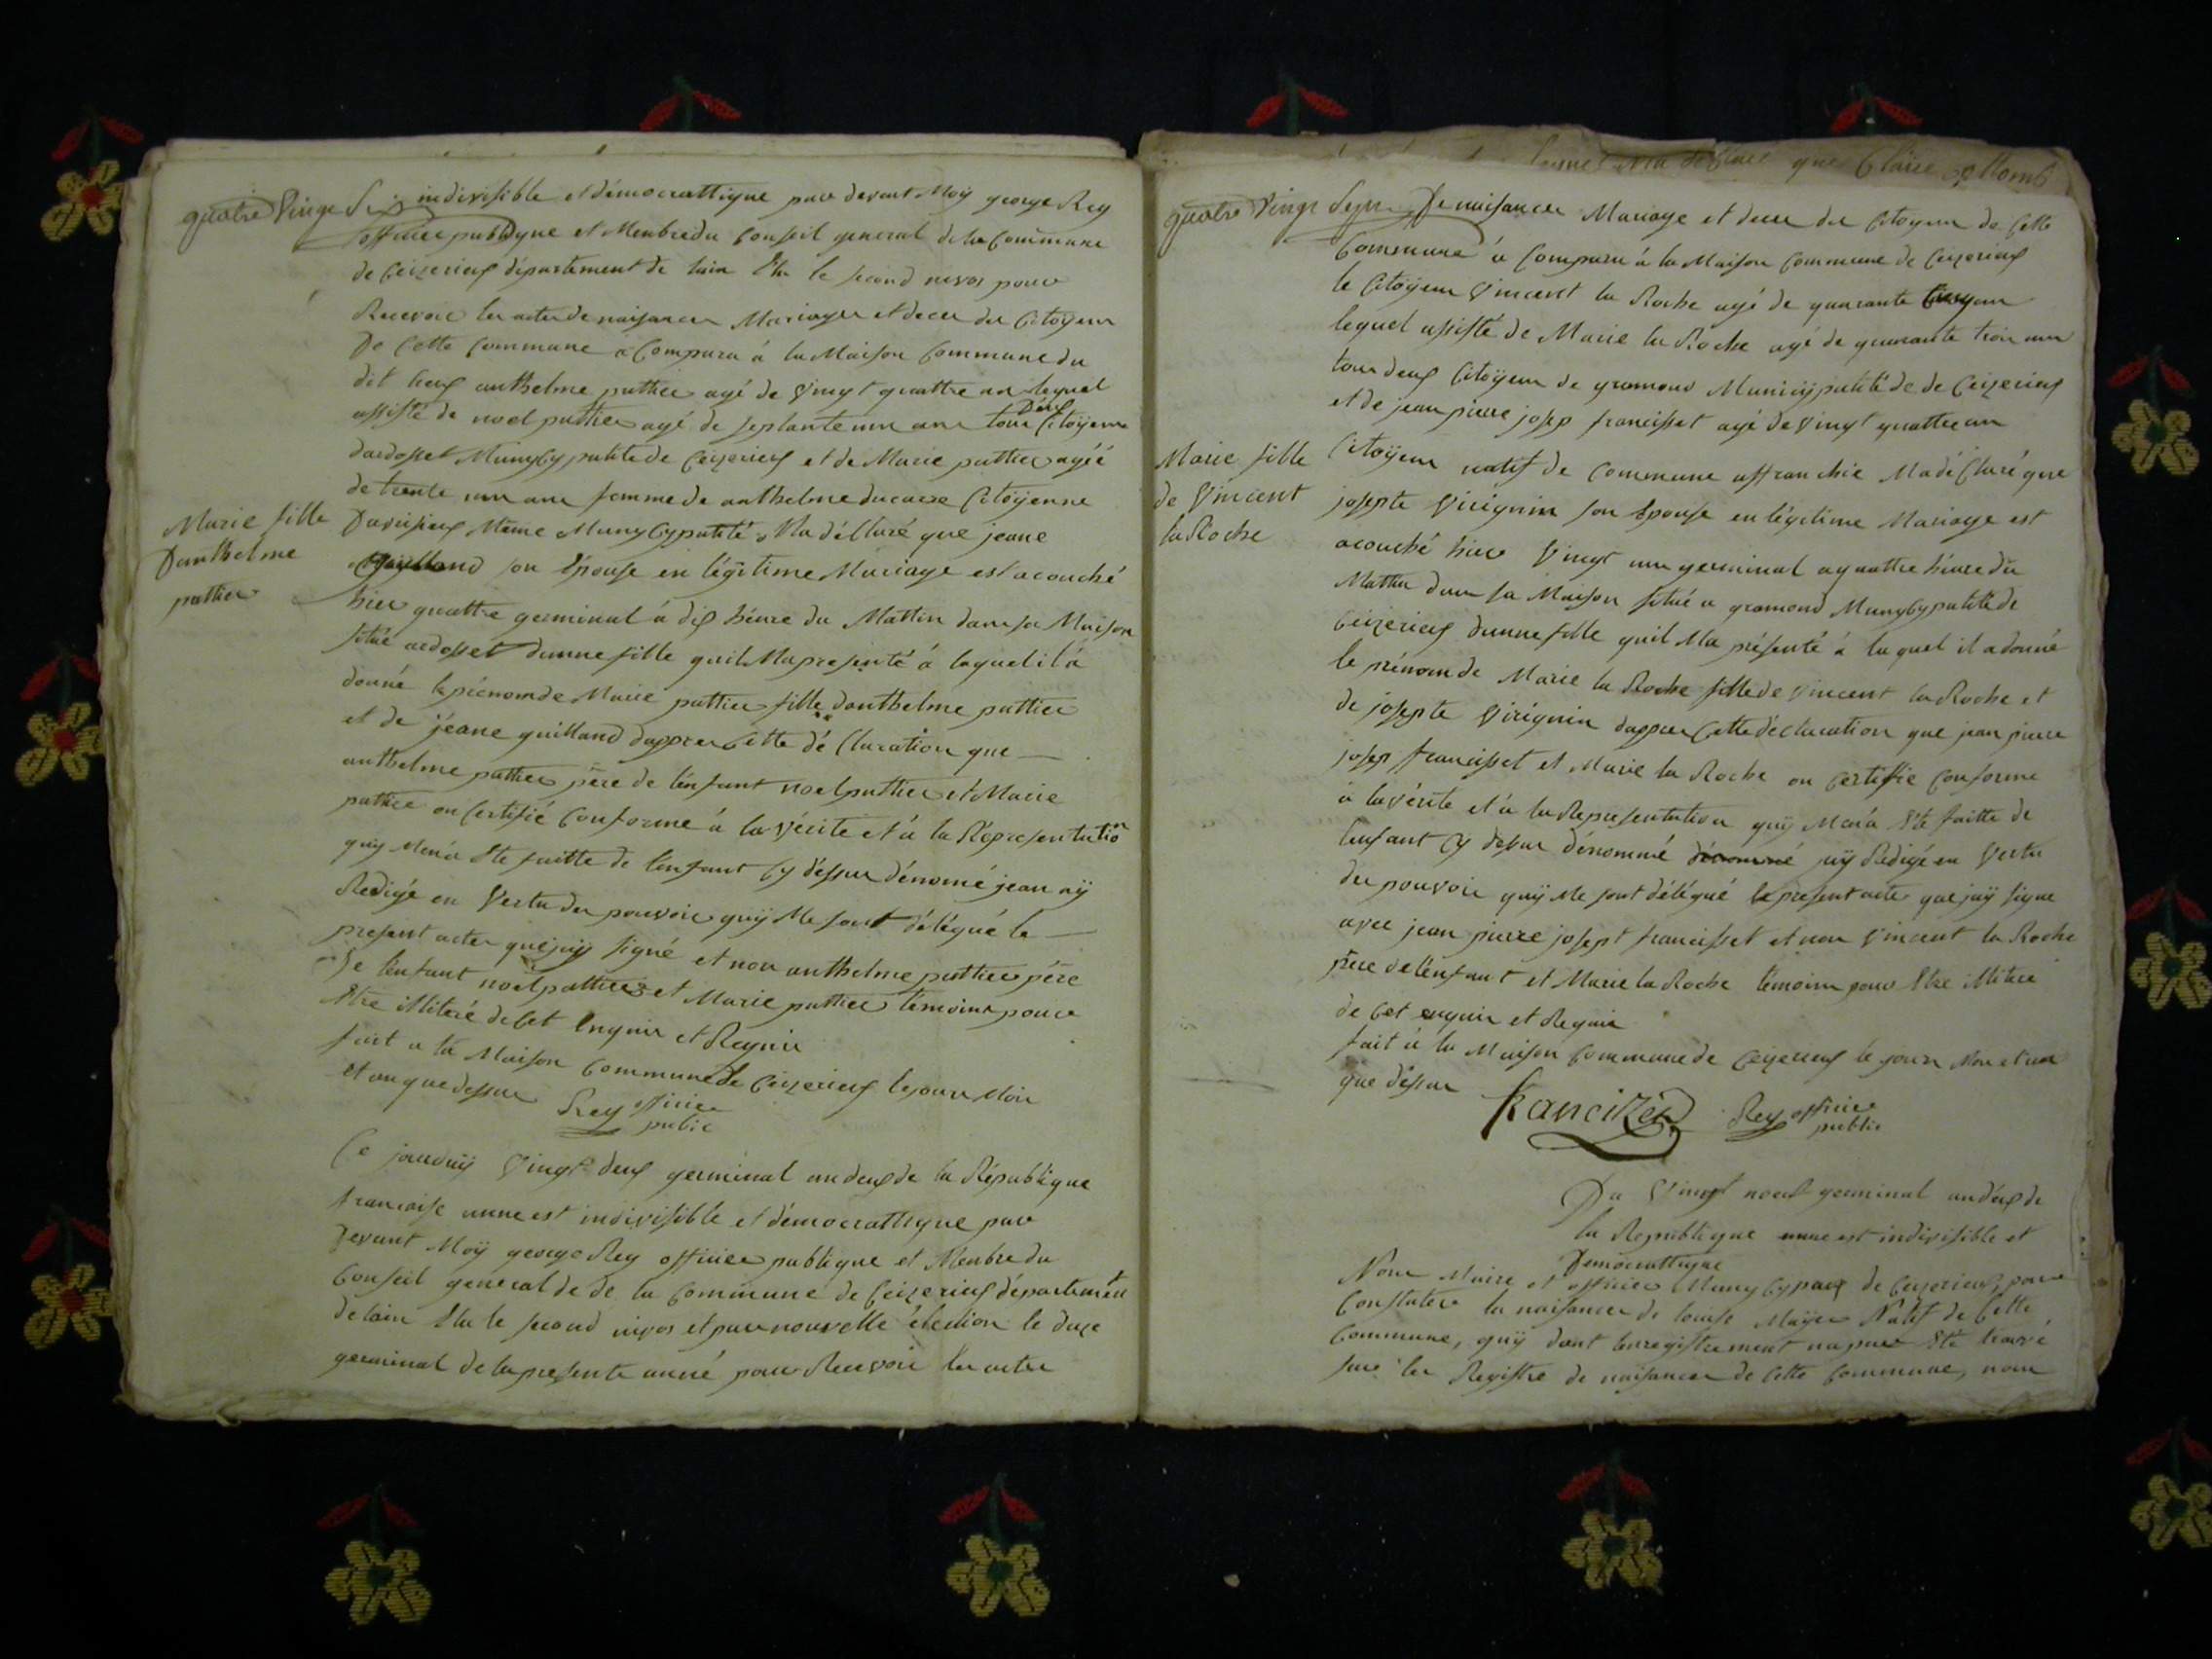 quatre Vingt Six indivisible et démocrattique par devant Moÿ george Rey
officier publique et Menbre du Conseil general de la Commune
de Ceizerieux département de lain Elu le second nivos pour
Recevoir les actes de naisances Mariages et deces des Citoÿens
De Cette Commune a Comparu á la Maison Commune du
dit lieux anthelme puthier agé de Vingt quattre ans lequel
assisté de noel puthier agé de septante un ans tous Deux Citoÿens
dardosset Munycypalité de Ceizerieux et de Marie puthier agéé
de trente un ans femme de anthelme ducarre Citoÿenne
Davisieux Même Munycypalité Ma déClaré que jeane
guilland son Epouse en légitime Mariage est acouché
hier quattre germinal á dix héure du Mattin dans sa Maison
situé ardosset dunne fille quil Ma presenté á laquel il á
donné le prénom de Marie puttier fille danthelme puttier
et de jéane guilland dappres Cette déClaration que
anthelme puthier père de lénfant noel puthier et Marie
puthier on Certifié Conforme á la Vérite et á la Répresentation
quÿ Mená Ete faitte de lénfant Cy déssus dénomé jean aÿ
Redigé en Vertu des pouvoirs quÿ Me sont délégué le
present actes que jaÿ signé et non anthelme puttier père
de lénfant noel puttier et Marie puttier témoins pour
Etre illiteré de Cet Enquis et Requis
fait a la Maison Commune de Ceizerieux le jour Mois
et an que dessus Rey officier
public
Marie fille
Danthelme
puthier
Ce jourduÿ Vingt deux germinal an deux de la République
francaise unne est indivisible et démocrattique par
devant Moÿ george Rey officier publique et Menbre du
Conseil general de de la Commune de Ceizerieux département
de lain Elu le second nivos et par nouvelle élection le duze
germinal de la presente anné pour Recevoir les actes
que Claire
quatre Vingt Sept De naisances Mariage et deces des Citoyens de Cette
Commune á Comparu á la Maison Commune de Ceizerieux
le Citoÿen Vincent la Roche agé de quarante
lequel assisté de Marie la Roche agé de quarante trois ans
tous deux Citoÿens de gramond Municÿpalité de de Ceizerieux
et de jean pierre josep francisset agé de Vingt quattre ans
Citoÿen natif de Commune affranchie Ma déClaré que
josepte Virignin son Epouse en légitime Mariage est
acouché hier Vingt un germinal a quattre héure du
Mattin dans sa Maison situé a gramond Munycypalité de
Ceizerieux dunne fille quil Ma présenté á la quel il a donné
le prénom de Marie la Roche fille de Vincent la Roche et
de josepte Virignin dappres Cette déclaration que jean pierre
josep francisset et Marie la Roche on Certiffié Conforme
á la vérite et á la Representation quÿ Mená Eté faitte de
lenfant Cy dessus dénommé dénommé jaÿ Rédigé en Vertu
des pouvoirs quÿ Me sont délégué le present actes que jaÿ signe
avec jean pierre josept francisset et non Vincent la Roche
père de lénfant et Marie la Roche témoins pour Etre illiteré
de Cet enquis et Requis
fait á la Maison Commune de Ceizerieux le jour Mois et an
que déssus
Marie fille
de Vincent
la Roche
Rey officier
public
Du Vingt noeuf germinal an déux de
la République unne est indivisible et
Démocrattique
Nous Maire et officier Munycypaux de Ceizerieux, pour
Constater la naisances de louise Natif de Cette
Commune, quÿ dont lenregistrement na pas Eté trouvé
sur les Registre de naisances de Cette Commune, nous